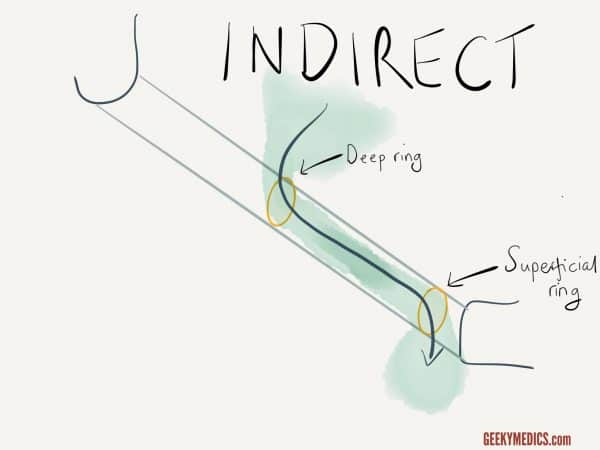 INDIRECT
Deep ring
Superficial
ring
GEEKYMEDICS.com